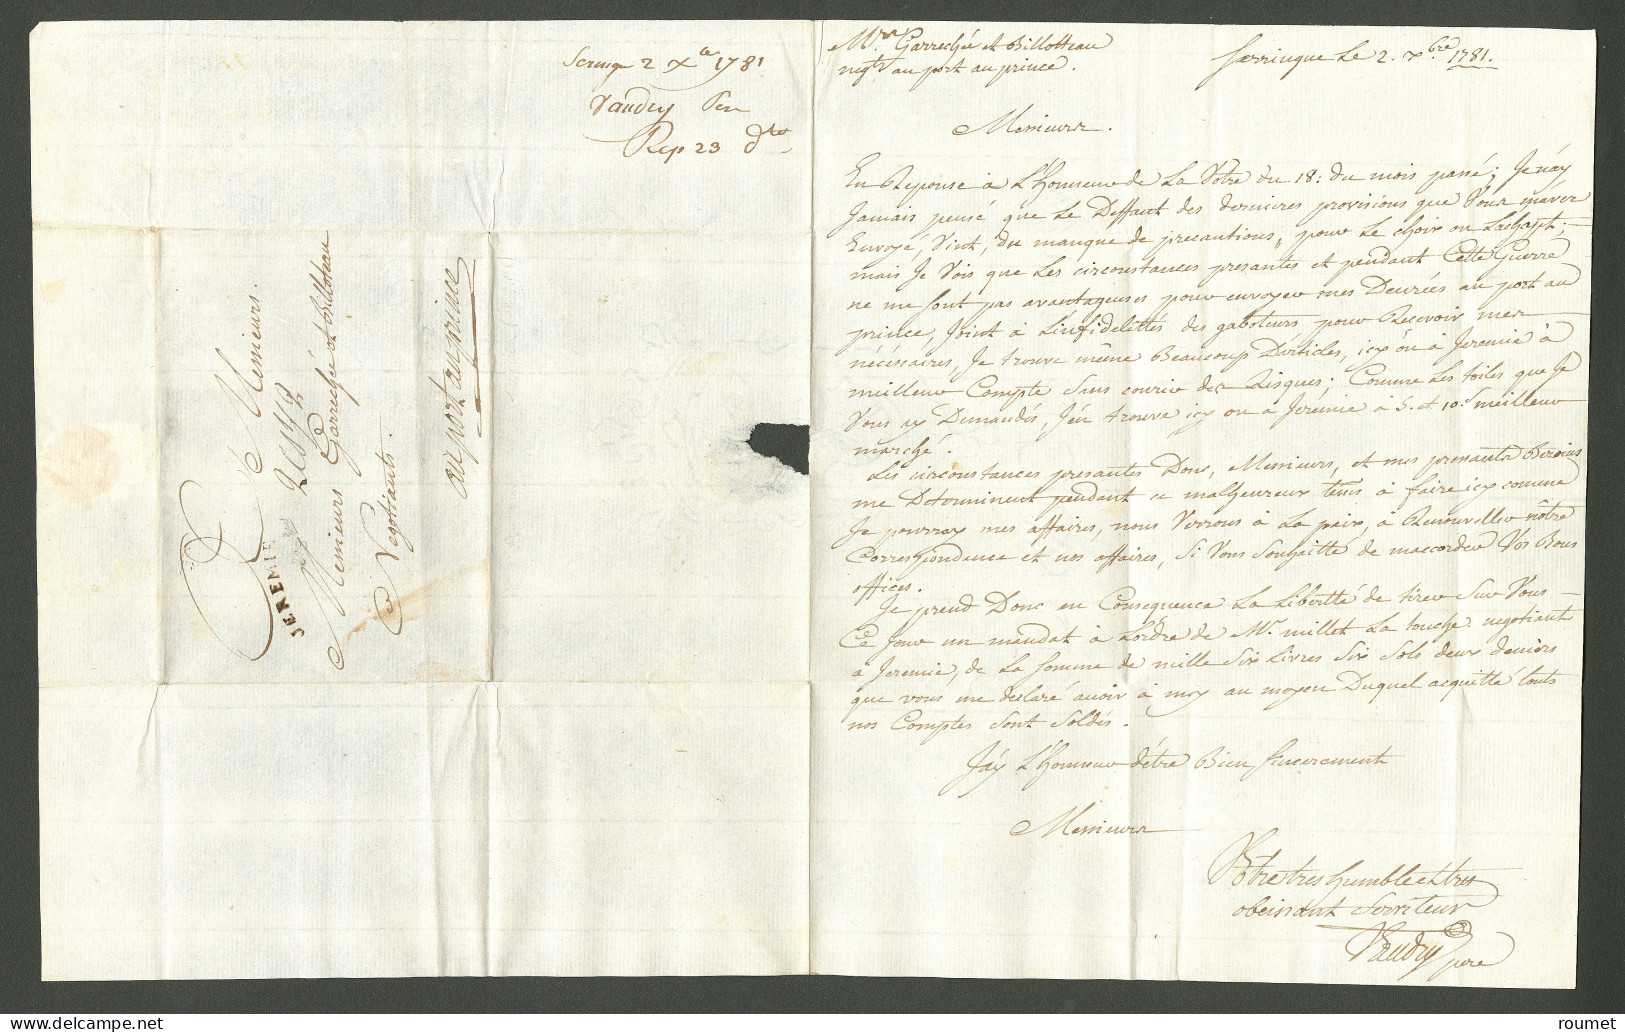 2 Xbre 1781
Vaudry Pere
Rep 23 do
A Messieurs.
Messieurs Garreschée et Billoteau
Negotiants.
au port au prince
JEREMIE
Mrs Garreschée et Billotteau
negts au port au prince.
le 2. Xbre 1781.
Messieurs.
En Reponse à L'Honneur de La Votre du 18: du mois passé; Je n'ay
Jamais pensé que Le Deffaut des dernieres provisions que Vous m'avez
Envoyé, Vint, du manque de precautions, pour Le choix ou Lachapt;
mais Je Vois que Les circonstances presantes et pendant Cette Guerre
ne me sont pas avantageuses pour envoyer mes Denrées au port au
prince, Joint à L'infidelittés des gaboteurs pour Recevoir mes
nécessaires, Je trouve même Beaucoup D'articles, icy ou à Jeremie à
meilleur Compte Sans courir des Risques; Comme Les toiles que Je
Vous ay Demandés, J'en trouve icy ou à Jérémie à 5. et 10.s meilleur
marché.
Les circonstances presantes Donc, Messieurs, et mes presants Bezoins
me Determinent pendant ce malheureux tems à faire icy comme
Je pourray mes affaires, nous Verrons à La paix, à Renouveller nôtre
Correspondance et nos affaires, Si Vous Souhaitté de m'accorder Vos Bons
offices.
Je prend Donc en Consequence La Libertté de tirer Sur Vous
Ce Jour un mandat à L'ordre de Mr. millet La touche negotiant
à Jeremie, de La somme de mille Six Livres Six Sols deux deniers
que vous me declaré avoir à moy au moyen Duquel acquitté touts
nos Comptes Sont Soldés.
J'ay L'Honneur d'être Bien Sincerement
Messieurs
Votre tres humble et tres
obeissant Serviteur
Vaudry pere
roumet